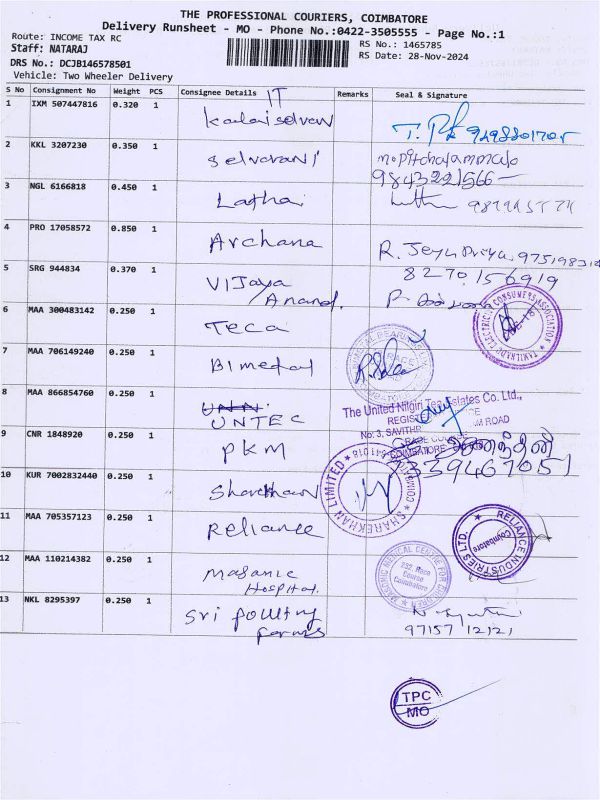 THE PROFESSIONAL COURIERS, COIMBATORE
Delivery Runsheet - MO - Phone No.:0422-3505555 - Page No.:1
Route: INCOME TAX RC
RS No.: 1465785
Staff: NATARAJ
RS Date: 28-Nov-2024
DRS No.: DCJB146578501
Vehicle: Two Wheeler Delivery
S No Consignment No Weight PCS Consignee Details IT Remarks Seal & Signature
1 IXM 507447816 0.320 1 Kalaiselvan
2 KKL 3207230 0.350 1 Selvarani mopitchaiammala
9843221566
3 NGL 6166818 0.450 1 Lathai
4 PRO 17058572 0.850 1 Archana R. Jeyapriya 975198314
5 SRG 944834 0.370 1 Vijaya 8270156919
Anand.
6 MAA 300483142 0.250 1 Teca
TAMILNADU ELECTRICITY CONSUMERS ASSOCIATION
7 MAA 706149240 0.250 1 Bimetal
8 MAA 866854760 0.250 1 UNN.
UNTEC
The United Nilgiri Tea Estates Co. Ltd.,
No: 3, SAVITHRI
COIMBATORE 641 018
9 CNR 1848920 0.250 1 PKM
9339467051
10 KUR 7002832440 0.250 1 Sharekhan
SHAREKHAN LIMITED
11 MAA 705357123 0.250 1 Reliance
RELIANCE INDUSTRIES LTD.
Coimbatore
12 MAA 110214382 0.250 1 Masanic
Hospital.
MASONIC MEDICAL CENTRE FOR CHILDREN
232, Race
Course
Coimbatore
13 NKL 8295397 0.250 1 Sri Poultry
Farms
97157 12121
TPC
MO